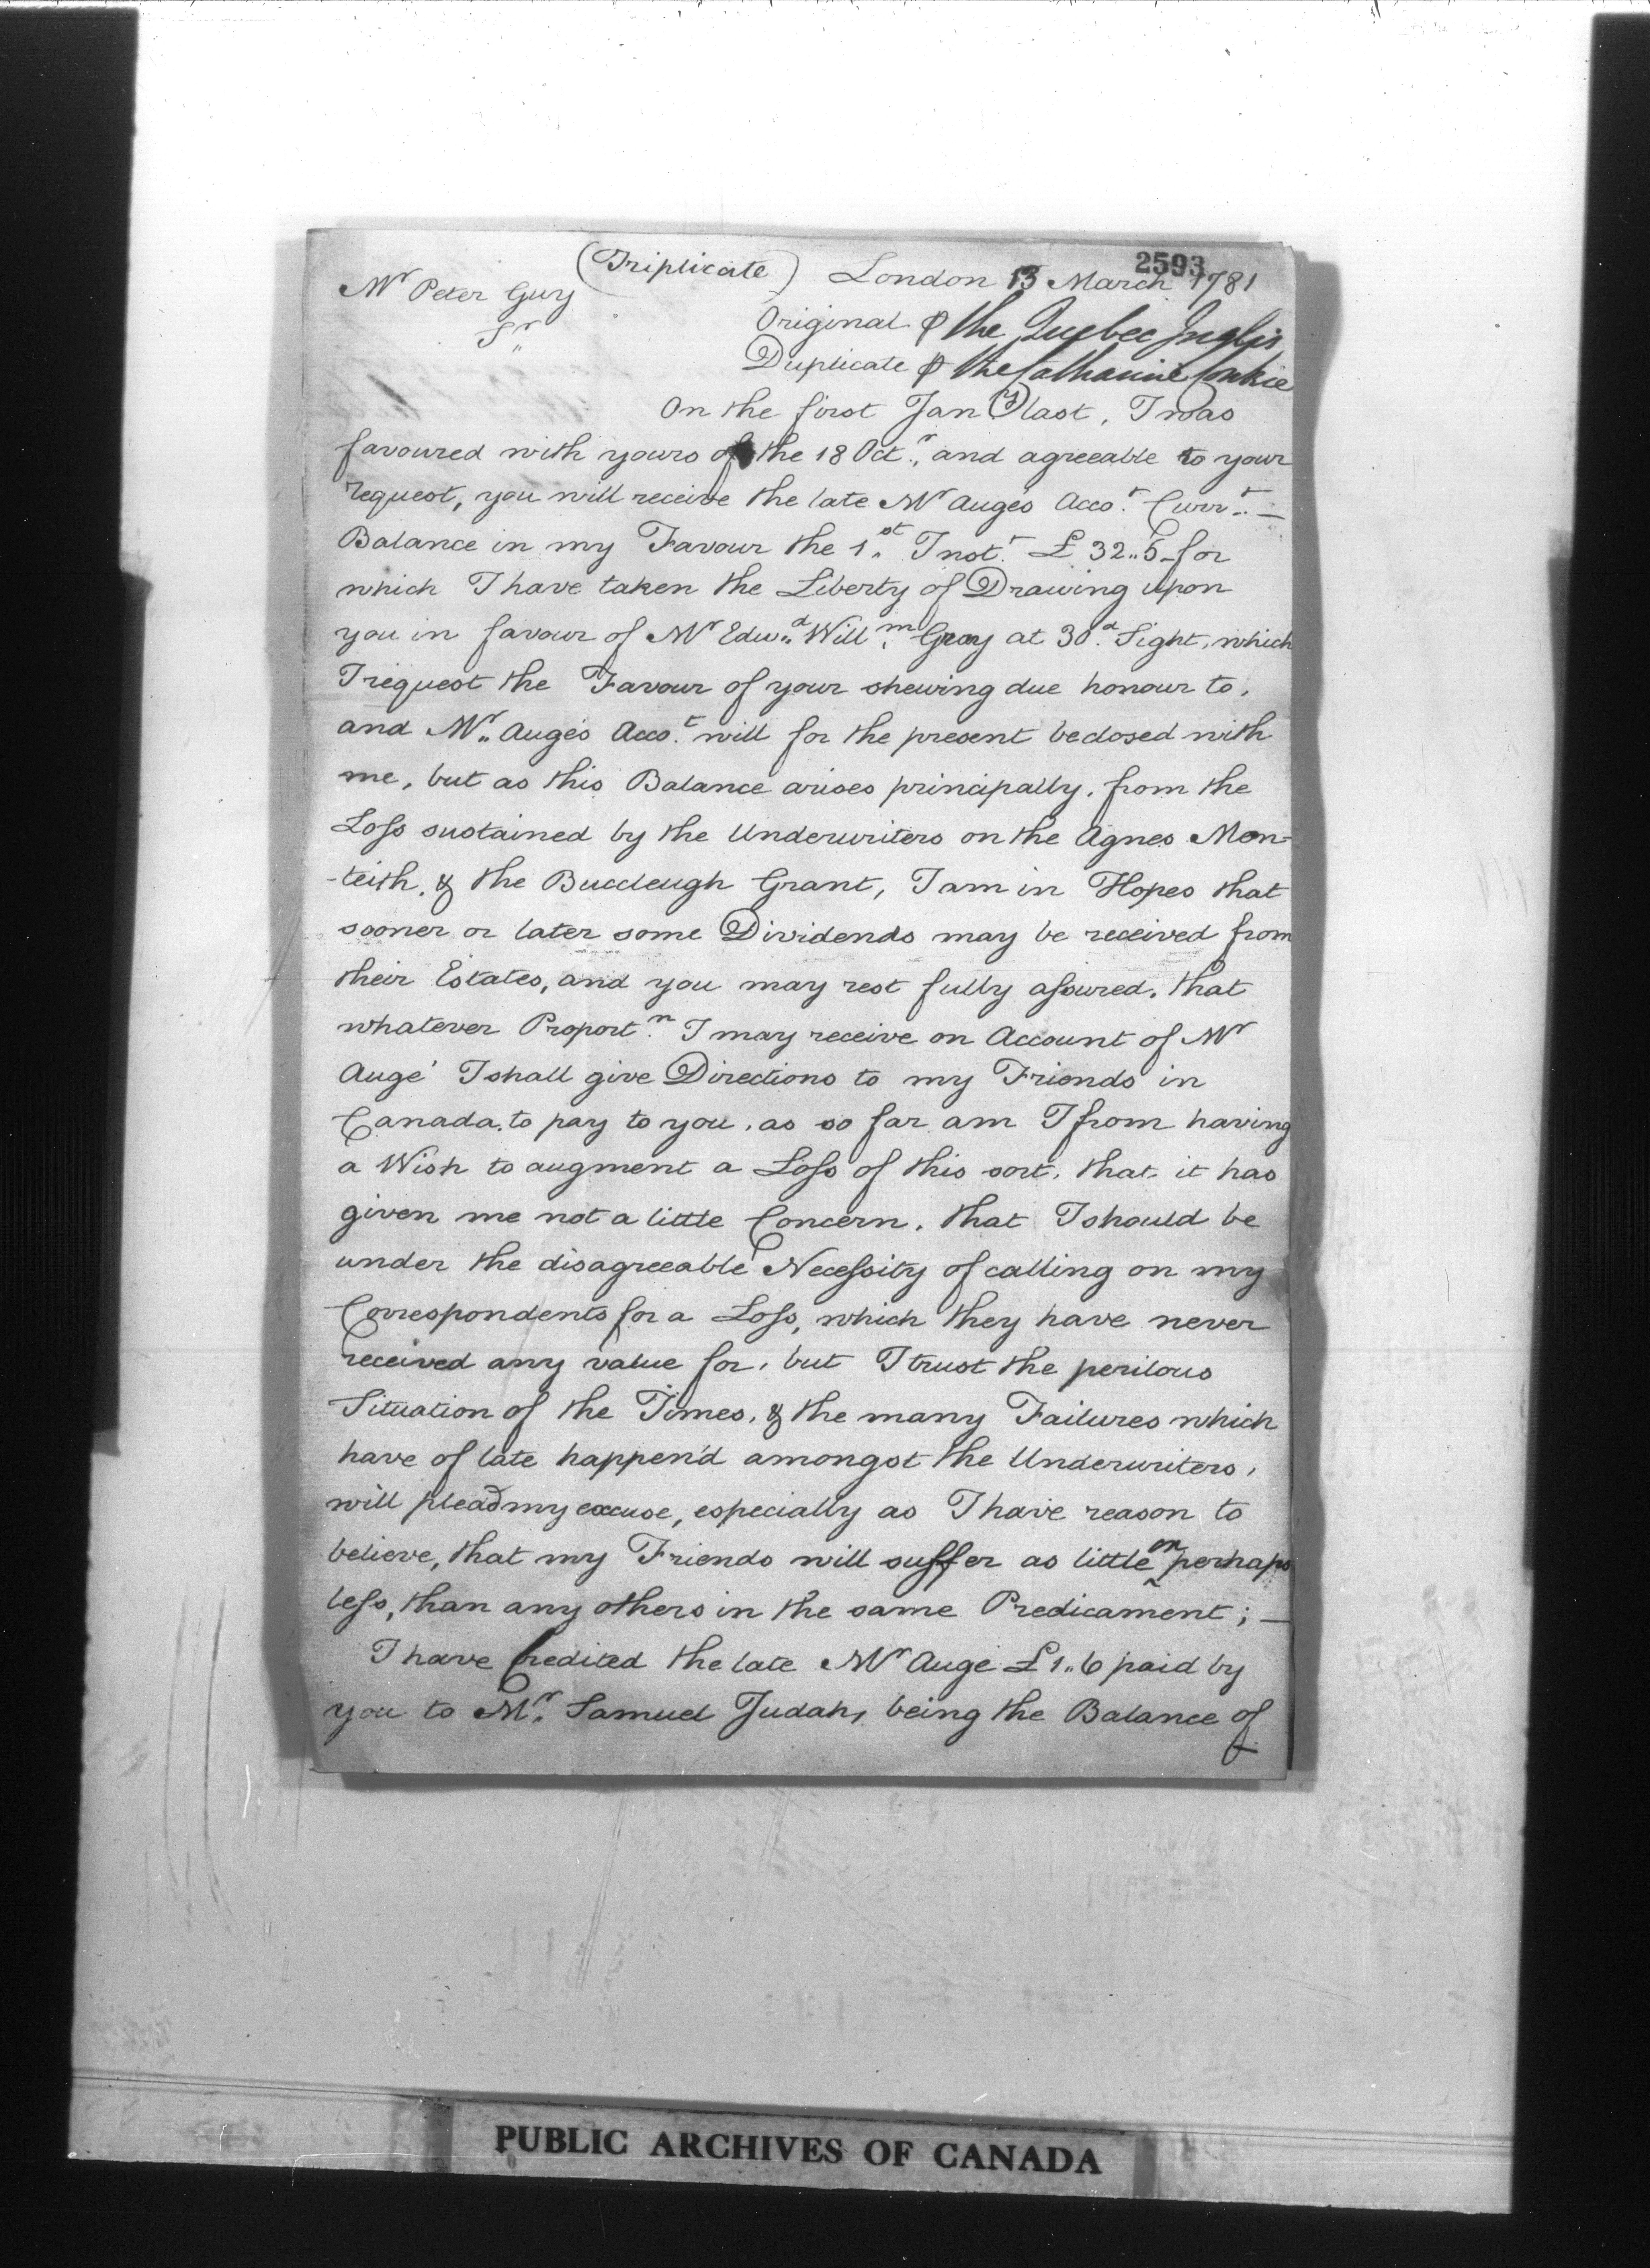 2593
(Triplicate) London 13 March 1781
Mr Peter Guy
Sr
Original ⅌ the Quebec Inglis
Duplicate ⅌ the Catharine Conkie
On the first Jany last, I was
favoured with yours of the 18 Octr, and agreeable to your
request, you will receive the late Mr Augés Accot. Currt. —
Balance in my Favour the 1st Inst. £ 32..5 for
which I have taken the Liberty of Drawing upon
you in favour of Mr Edwd. Willm. Gray at 30d. Sight, which
I request the Favour of your shewing due honour to,
and Mr. Augés Accot. will for the present be closed with
me, but as this Balance arises principally, from the
Loss sustained by the Underwriters on the Agnes Mon-
-teith, & the Buccleugh Grant, I am in Hopes that
sooner or later some Dividends may be received from
their Estates, and you may rest fully assured, that
whatever Proportn. I may receive on Account of Mr
Augé I shall give Directions to my Friends in
Canada, to pay to you, as so far am I from having
a Wish to augment a Loss of this sort, that it has
given me not a little Concern, that I should be
under the disagreeable Necessity of calling on my
Correspondents for a Loss, which they have never
received any value for, but I trust the perilous
Situation of the Times, & the many Failures which
have of late happen'd amongst the Underwriters,
will plead my excuse, especially as I have reason to
believe, that my Friends will suffer as little or perhaps
less, than any others in the same Predicament; —
I have Credited the late Mr Auge £ 1..6 paid by
you to Mr. Samuel Judah, being the Balance of
PUBLIC ARCHIVES OF CANADA